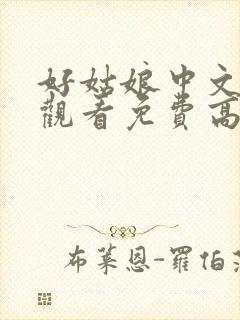 好姑娘中文
觀看免費高
布萊恩-羅伯